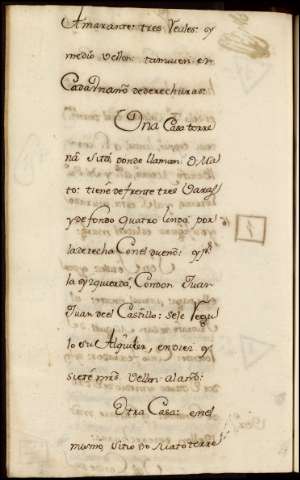 Amarante: tres Reales: y
medio Vellon: tamuien en
Cada Vn año de derechuras:
Vna Casa torre
na Sita, donde llaman O Ma
to: tiene de frente tres Varas
y de fondo quatro linda por
la derecha Con el dueño: y pr
la yzquierda, Con Don Juan
Juan de el Castillo: se le Regu
lo su Alquiler, en diez y
siete mrs Vellon al año:
Otra Casa: en el
mismo, Sitio do Mato terre